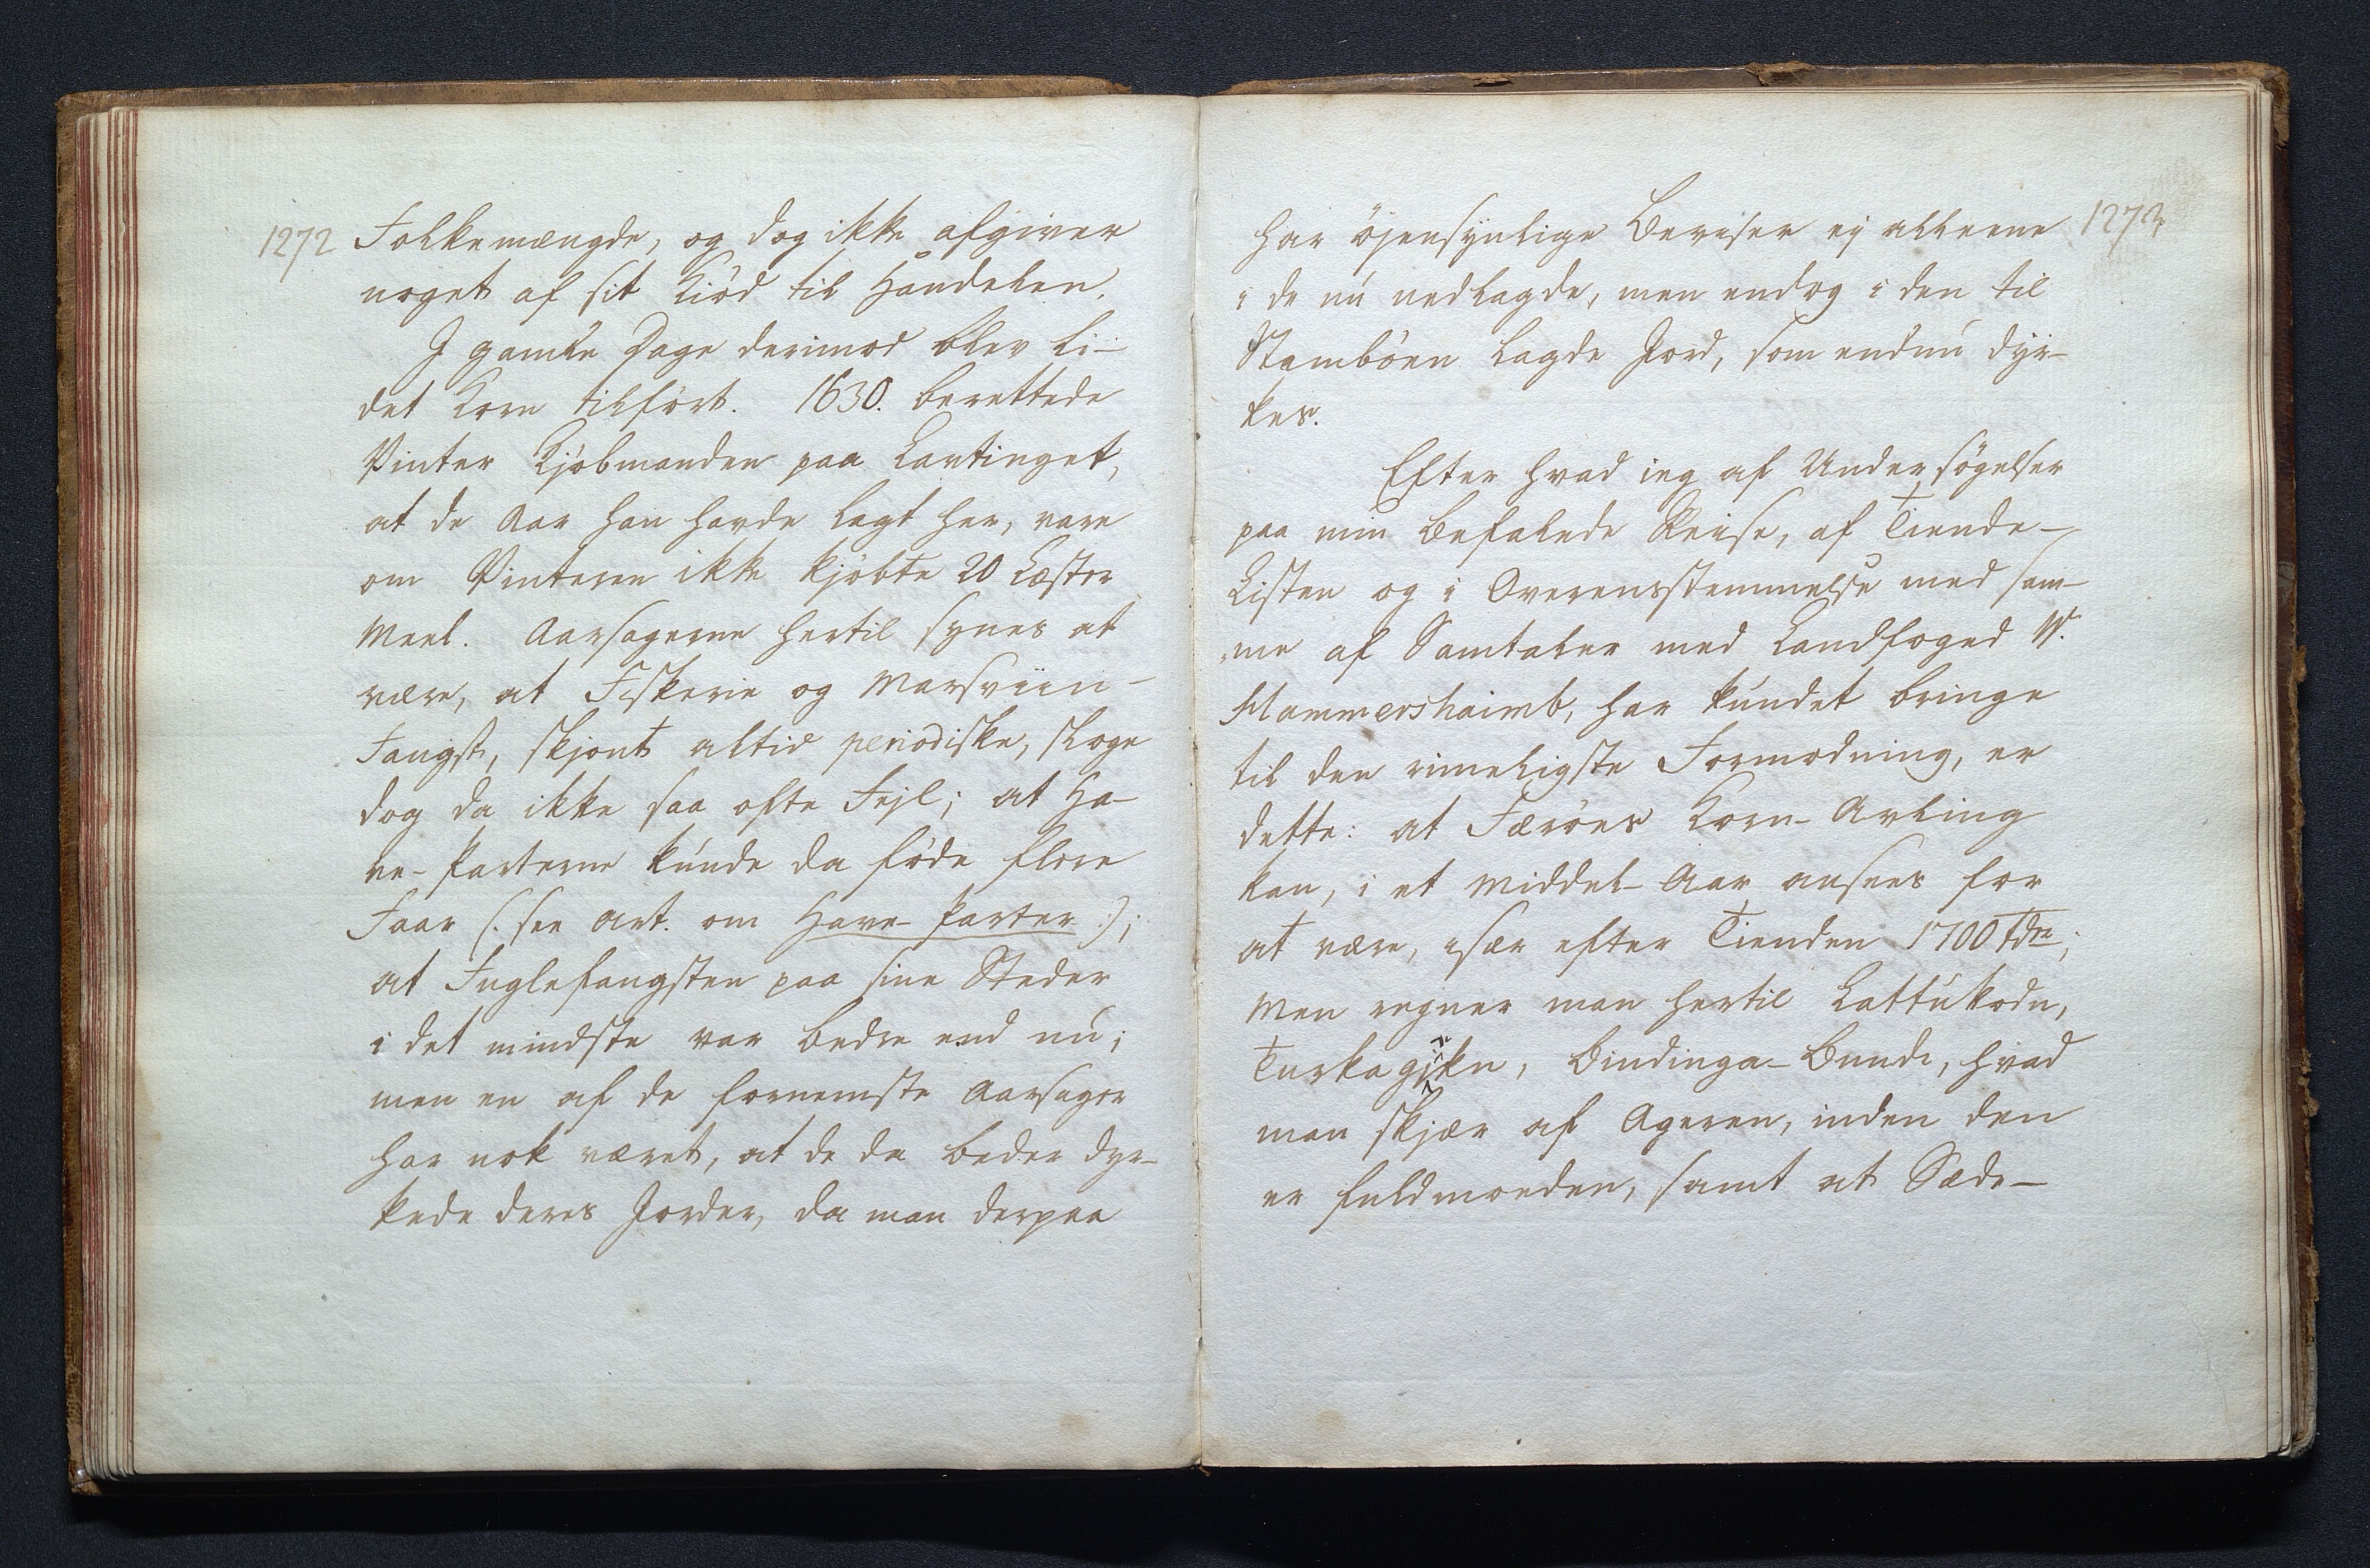 1272
Folkemængde, og dog ikke afgiver
noget af sit Kiød til Handelen.
I gamle Dage derimod blev li-
det Korn tilført. 1630. berettede
Vinter Kjøbmanden paa Lavtinget,
at de Aar han havde lagt her, vare
om Vinteren ikke kjøbte 20 Læster
Meel. Aarsagerne hertil synes at
være, at Fiskerie og Marsviin-
Fangst, skjønt altid periodiske, sloge
dog da ikke saa ofte Fejl; at Ha-
ve-Parterne kunde da føde flere
Faar (: see Art. om Have-Parter :);
at Fuglefangsten paa sine Steder
i det mindste var bedre end nu;
men en af de fornemste Aarsager
har nok været, at de da beder dyr-
kede deres Jorder, da man derpaa
1273.
har øjensynlige Beviser ej alleene
i de nu nedlagde, men endog i den til
Stambøen lagde Jord, som endnu dyr-
kes.
Efter hvad ieg af Undersøgelser
paa min befalede Reise, af Tiende-
Listen og i Overensstemmelse med sam-
me af Samtaler med Landfoged W.
Hammershaimb, har kundet bringe
til den rimeligste Formodning, er
dette: at Færøes Korn-Avling
kan, i et Middel-Aar ansees for
at være, især efter Tienden 1700 Tdr;
Men regner man hertil Lattukodn,
Turkagjikn, Bindinga-Bundi, hvad
man skjær af Ageren, inden den
er fuldmoeden, samt at Sæde-